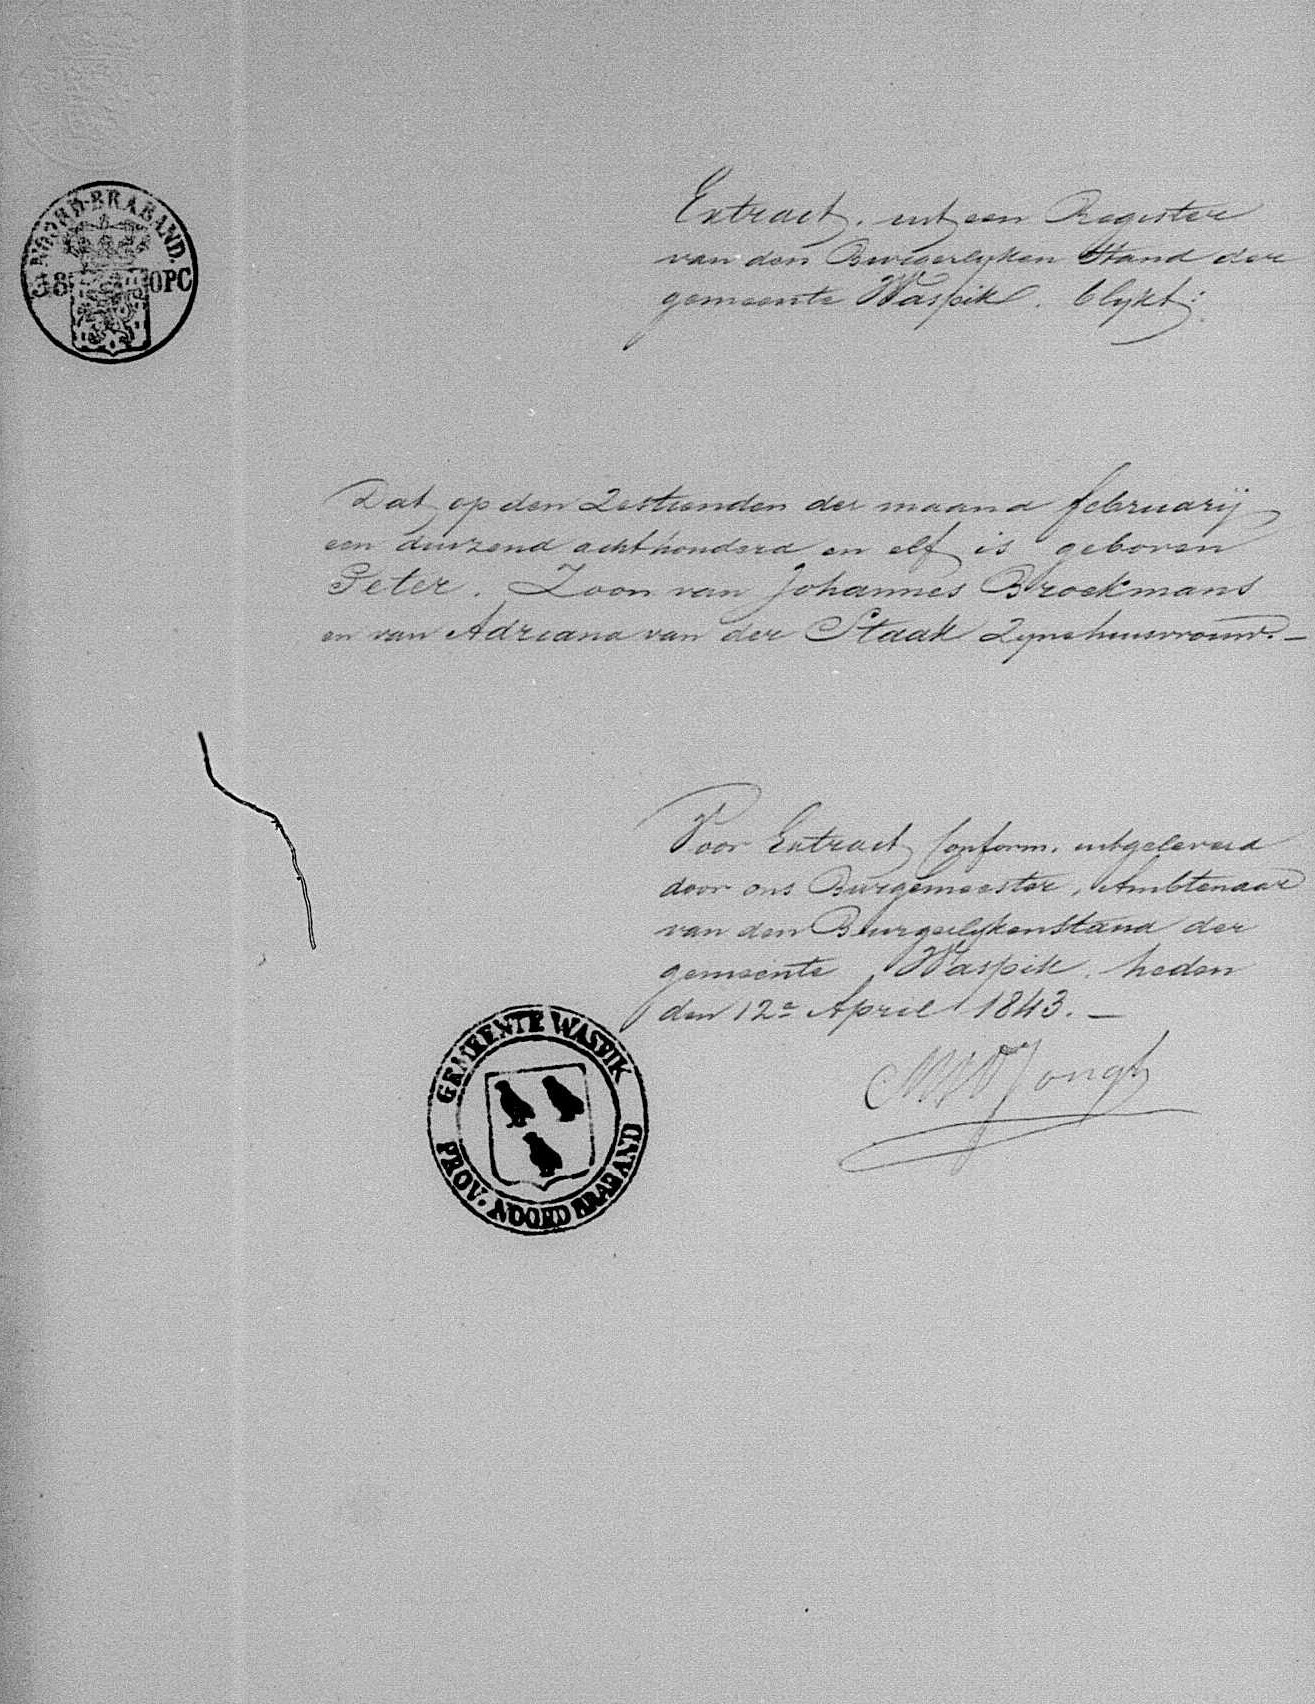 NOORD-BRABAND.
38 OPC
Extract. uit een Register
van den Burgerlyken Stand der
gemeente Waspik. blykt:
Dat op den Zestienden der maand februarij
een duizend achthonderd en elf is geboren
Peter. Zoon van Johannes Broekmans
en van Adriana van der Staak Zynehuisvrouw. —
Voor Extract Conform. uitgeleverd
door ons Burgemeester, Ambtenaar
van den Burgerlykenstand der
gemeente Waspik. heden
den 12e April 1843. —
Jongh
GEMEENTE WASPIK
PROV. NOORD BRABAND